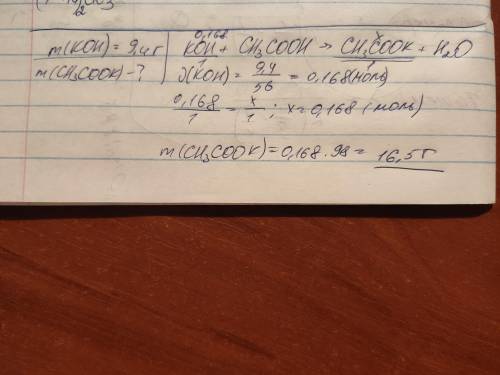 m(KOH) = 9,4г
m(CH₃COOK) - ?
0,168 x
KOH + CH₃COOH → CH₃COOK + H₂O
1 1
ν(KOH) = 9,4/56 = 0,168 (моль)
0,168/1 = x/1 ; x = 0,168 (моль)
m(CH₃COOK) = 0,168 · 98 = 16,5г